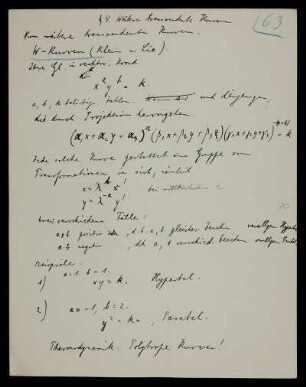 § 4. Weitere transcendente Kurven
63
Von weitere transcendente Kurven
W-Kurven (Klein u. Lie).
Ihre Gl. in rechtw. Koord
x^a y^b = k.
a, b, k beliebige Zahlen. und diejenigen,
die durch Projektion hervorgehen
(α₁x + α₂y + α₃)^a (β₁x + β₂y + β₃)^b (γ₁x + γ₂y + γ₃)^-(a+b) = k
Jede solche Kurve gestattet eine Gruppe von
Transformationen in sich, nämlich
x = λ^b x'
y = λ^-a y'
Zwei verschiedene Fälle:
a·b positiv, d.h. a, b gleiches Zeichen
a·b negativ, d.h. a, b verschied. Zeichen
70
Beispiele:
1) a = 1, b = 1.
xy = k. Hyperbel.
2) b = 2.
Parabel.
Thermodynamik. Polytrope Kurven!